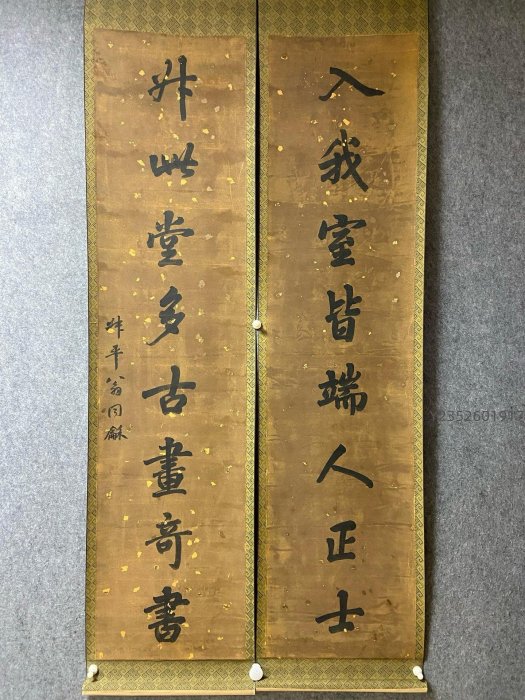 入我室皆端人正士
升此堂多古畫奇書
叔平翁同龢
2352601912